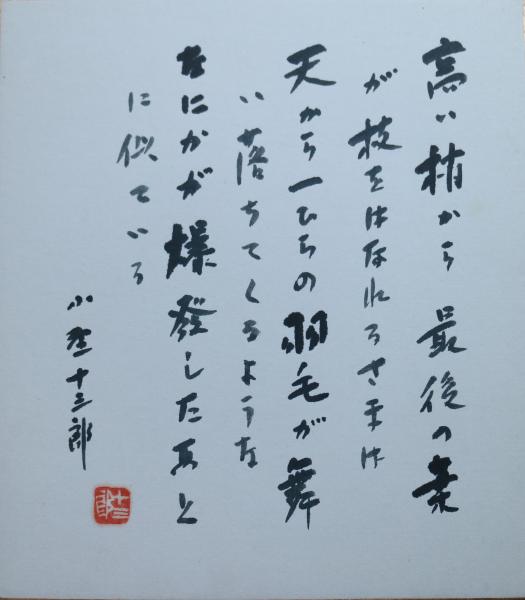 高い梢から最後の葉
が枝をはなれるさまは
天から一ひらの羽毛が舞
い落ちてくるような
なにかが爆発したあと
に似ている
小野十三郎
十三郎